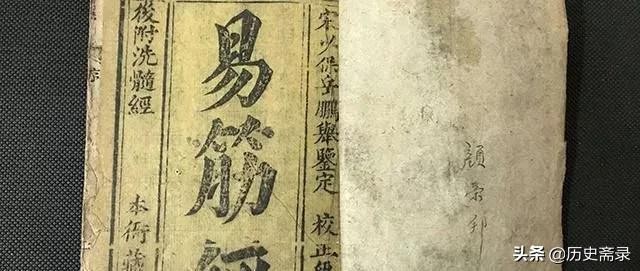 宋少保岳鵬舉鑒定 校正
易筋經
後附洗髓經 本衙藏
头条 @历史斋录